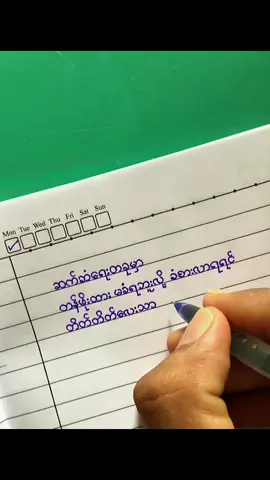 Mon Tue Wed Thu Fri Sat Sun
ဆက်ဆံရေးတခုမှာ
တန်ဖိုးထား မခံရဘူးလို့ ခံစားလာရရင်
တိတ်တိတ်လေးသာ